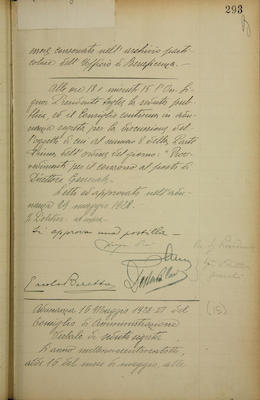 293
mane conservato nell'archivio parti-
colare dell'Ufficio di Beneficenza. —
Alle ore 18 e minuti 15 l'On. Si-
gnor Presidente toglie la seduta pub-
blica, ed il Consiglio continua in adu-
nanza segreta per la discussione del-
l'oggetto di cui al numero 2 della Parte
Prima dell'ordine del giorno: "Prov-
vedimenti per il concorso al posto di
Direttore Generale."
Letto ed approvato nell'adu-
nanza 29 maggio 1928.
Si approva una postilla. —
Adunanza 16 Maggio 1928 VI del
Consiglio di Amministrazione
Verbale di seduta segreta
L'anno millenovecentoventotto,
addì 16 del mese di maggio, alle
(15)